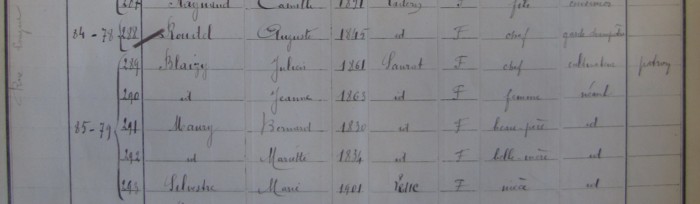 287 Raynaud Camille 1871 F fils
84-78 288 Roudel Auguste 1845 id F chef garde champêtre
289 Blaizy Julien 1861 Saurat F chef cultivateur patron
290 id Jeanne 1863 id F femme néant
85-79 291 Maury Bernard 1830 id F beau-père id
292 id Marielle 1834 id F belle-mère id
293 Selvestre Marie 1901 F nièce id